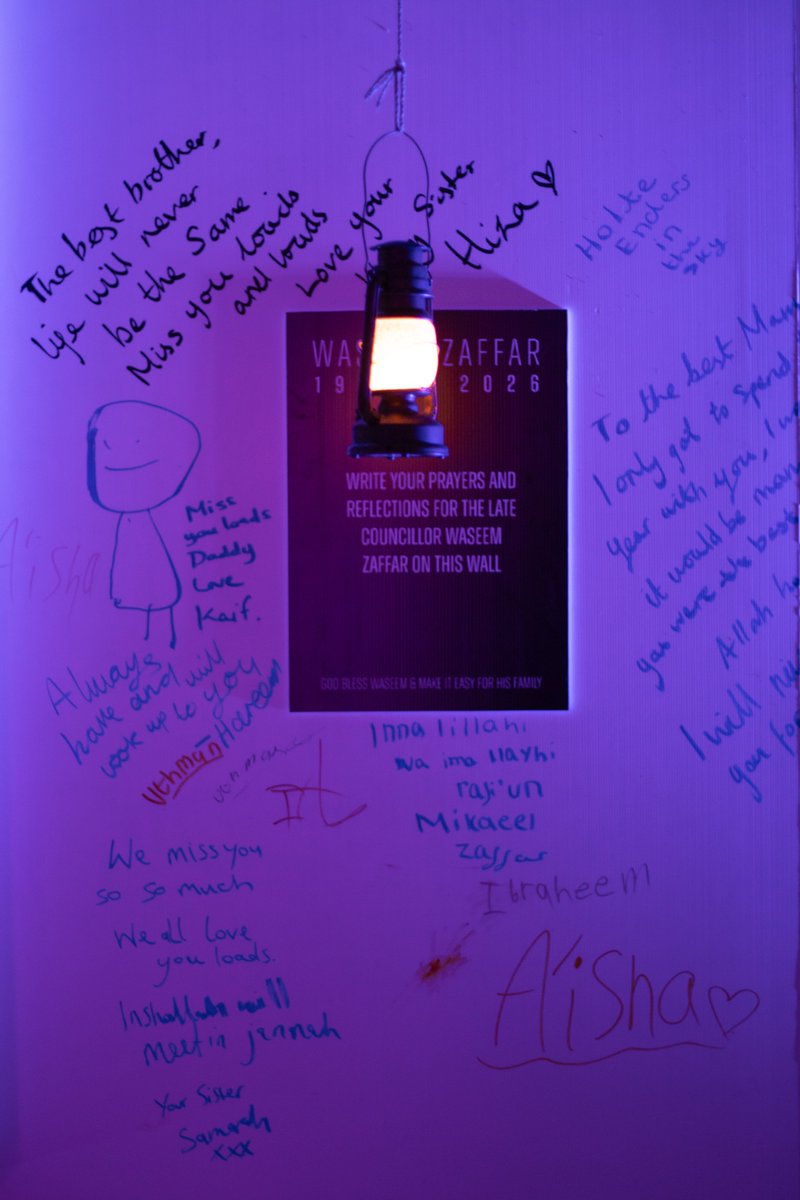 The best brother,
life will never
be the Same.
Miss you loads
and loads
Love your
Sister
Hiza
in
the
sky
WAS ZAFFAR
19 2026
WRITE YOUR PRAYERS AND
REFLECTIONS FOR THE LATE
COUNCILLOR WASEEM
ZAFFAR ON THIS WALL
GOD BLESS WASEEM & MAKE IT EASY FOR HIS FAMILY
To the best Mam
I only got to spend
year with you, I
it would be man
you were the best
Allah
I will
you for
A'isha
Miss
you loads
Daddy
Love
Kaif.
Always
have and will
look up to you
Hareem
Uthmān
Inna lillahi
wa inna ilayhi
raji'un
Mikaeel
Zaffar
Ibraheem
We miss you
so so much
We all love
you loads.
Inshallah will
meet in jennah
Your Sister
Samarah
xxx
A'isha